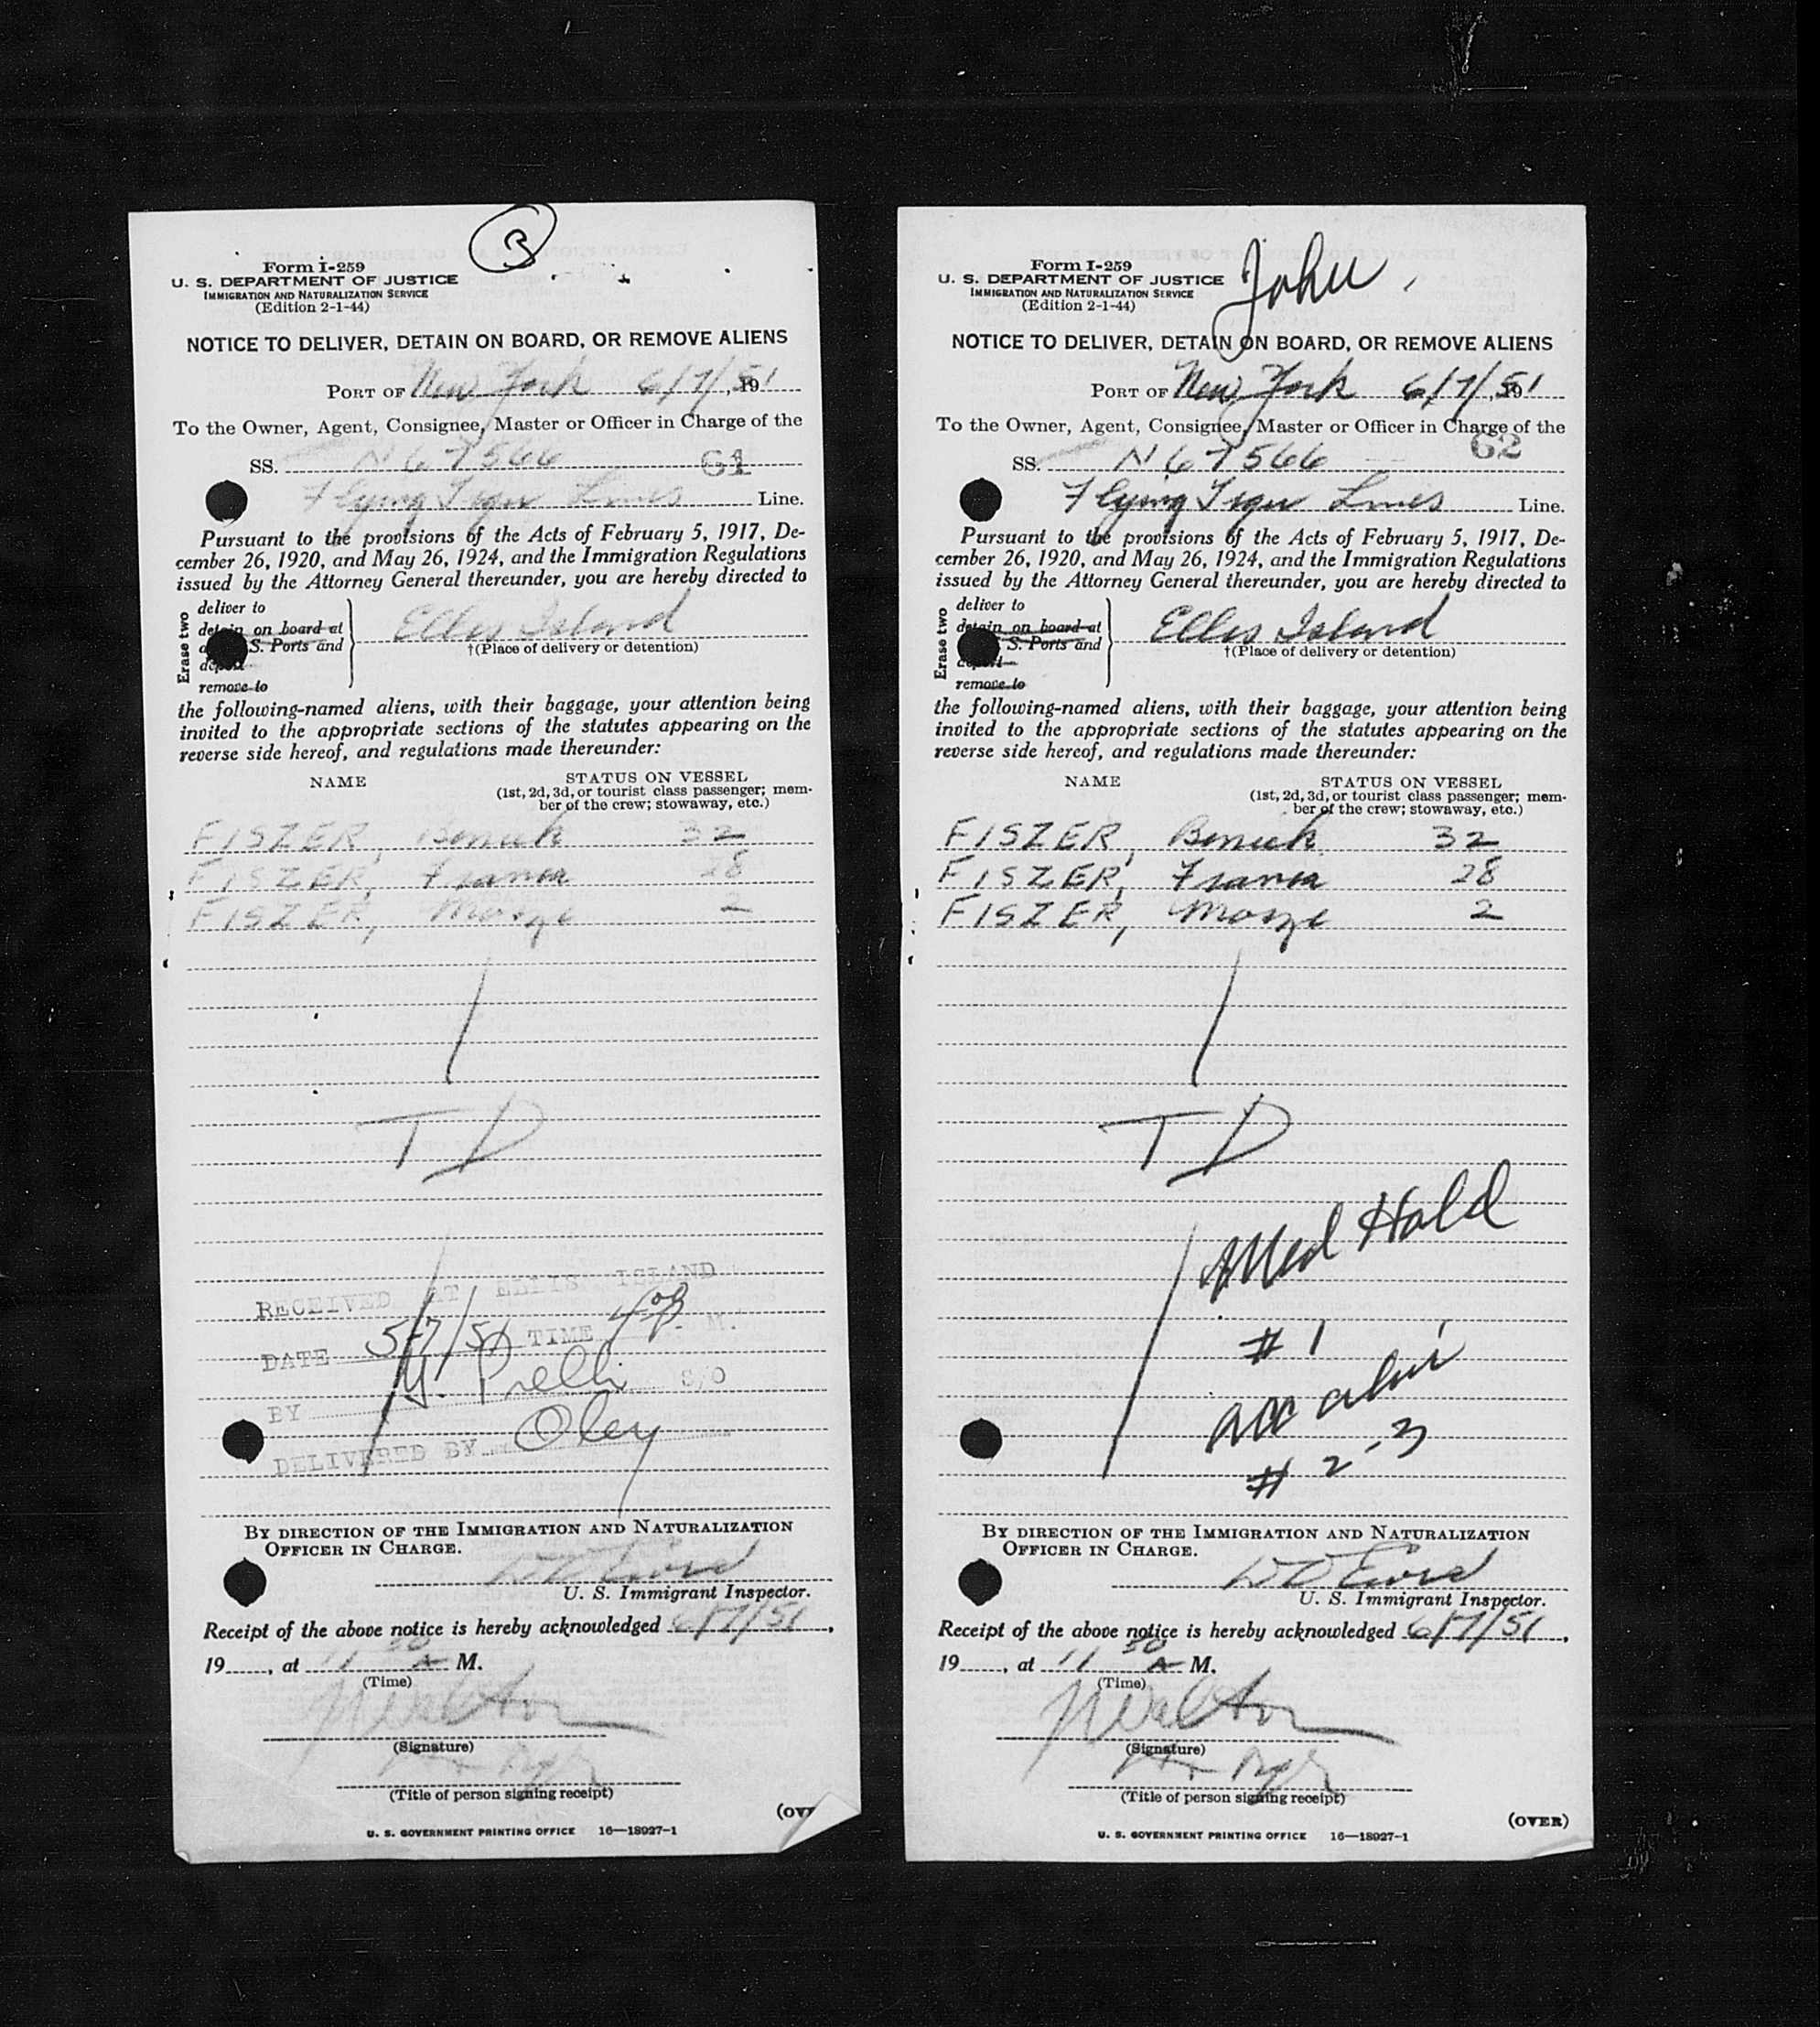 3
Form I-259
U. S. DEPARTMENT OF JUSTICE
IMMIGRATION AND NATURALIZATION SERVICE
(Edition 2-1-44)
NOTICE TO DELIVER, DETAIN ON BOARD, OR REMOVE ALIENS
PORT OF New York 6/7/51, 19
To the Owner, Agent, Consignee, Master or Officer in Charge of the
SS. N67566 61
Flying Tiger Lines Line.
Pursuant to the provisions of the Acts of February 5, 1917, De-
cember 26, 1920, and May 26, 1924, and the Immigration Regulations
issued by the Attorney General thereunder, you are hereby directed to
Erase two
deliver to
detain on board at
S. Ports and
deport
remove to
Ellis Island
†(Place of delivery or detention)
the following-named aliens, with their baggage, your attention being
invited to the appropriate sections of the statutes appearing on the
reverse side hereof, and regulations made thereunder:
NAME STATUS ON VESSEL
(1st, 2d, 3d, or tourist class passenger; mem-
ber of the crew; stowaway, etc.)
FISZER, 32
FISZER, 28
FISZER, 2
TD
RECEIVED AT ELLIS ISLAND
DATE TIME M.
BY S/O
DELIVERED BY Oley
BY DIRECTION OF THE IMMIGRATION AND NATURALIZATION
OFFICER IN CHARGE.
U. S. Immigrant Inspector.
Receipt of the above notice is hereby acknowledged 6/7/51,
19, at 11 50 A M.
(Time)
(Signature)
(Title of person signing receipt)
U. S. GOVERNMENT PRINTING OFFICE 16—18927-1
Form I-259
U. S. DEPARTMENT OF JUSTICE
IMMIGRATION AND NATURALIZATION SERVICE
(Edition 2-1-44)
John,
NOTICE TO DELIVER, DETAIN ON BOARD, OR REMOVE ALIENS
PORT OF New York 6/7/51, 19
To the Owner, Agent, Consignee, Master or Officer in Charge of the
SS. N67566 62
Flying Tiger Lines Line.
Pursuant to the provisions of the Acts of February 5, 1917, De-
cember 26, 1920, and May 26, 1924, and the Immigration Regulations
issued by the Attorney General thereunder, you are hereby directed to
Erase two
deliver to
detain on board at
S. Ports and
deport
remove to
Ellis Island
†(Place of delivery or detention)
the following-named aliens, with their baggage, your attention being
invited to the appropriate sections of the statutes appearing on the
reverse side hereof, and regulations made thereunder:
NAME STATUS ON VESSEL
(1st, 2d, 3d, or tourist class passenger; mem-
ber of the crew; stowaway, etc.)
FISZER, 32
FISZER, 28
FISZER, 2
TD
Med Hold
#1
# 2-3
BY DIRECTION OF THE IMMIGRATION AND NATURALIZATION
OFFICER IN CHARGE.
U. S. Immigrant Inspector.
Receipt of the above notice is hereby acknowledged 6/7/51,
19, at 11 50 A M.
(Time)
(Signature)
(Title of person signing receipt)
(OVER)
U. S. GOVERNMENT PRINTING OFFICE 16—18927-1